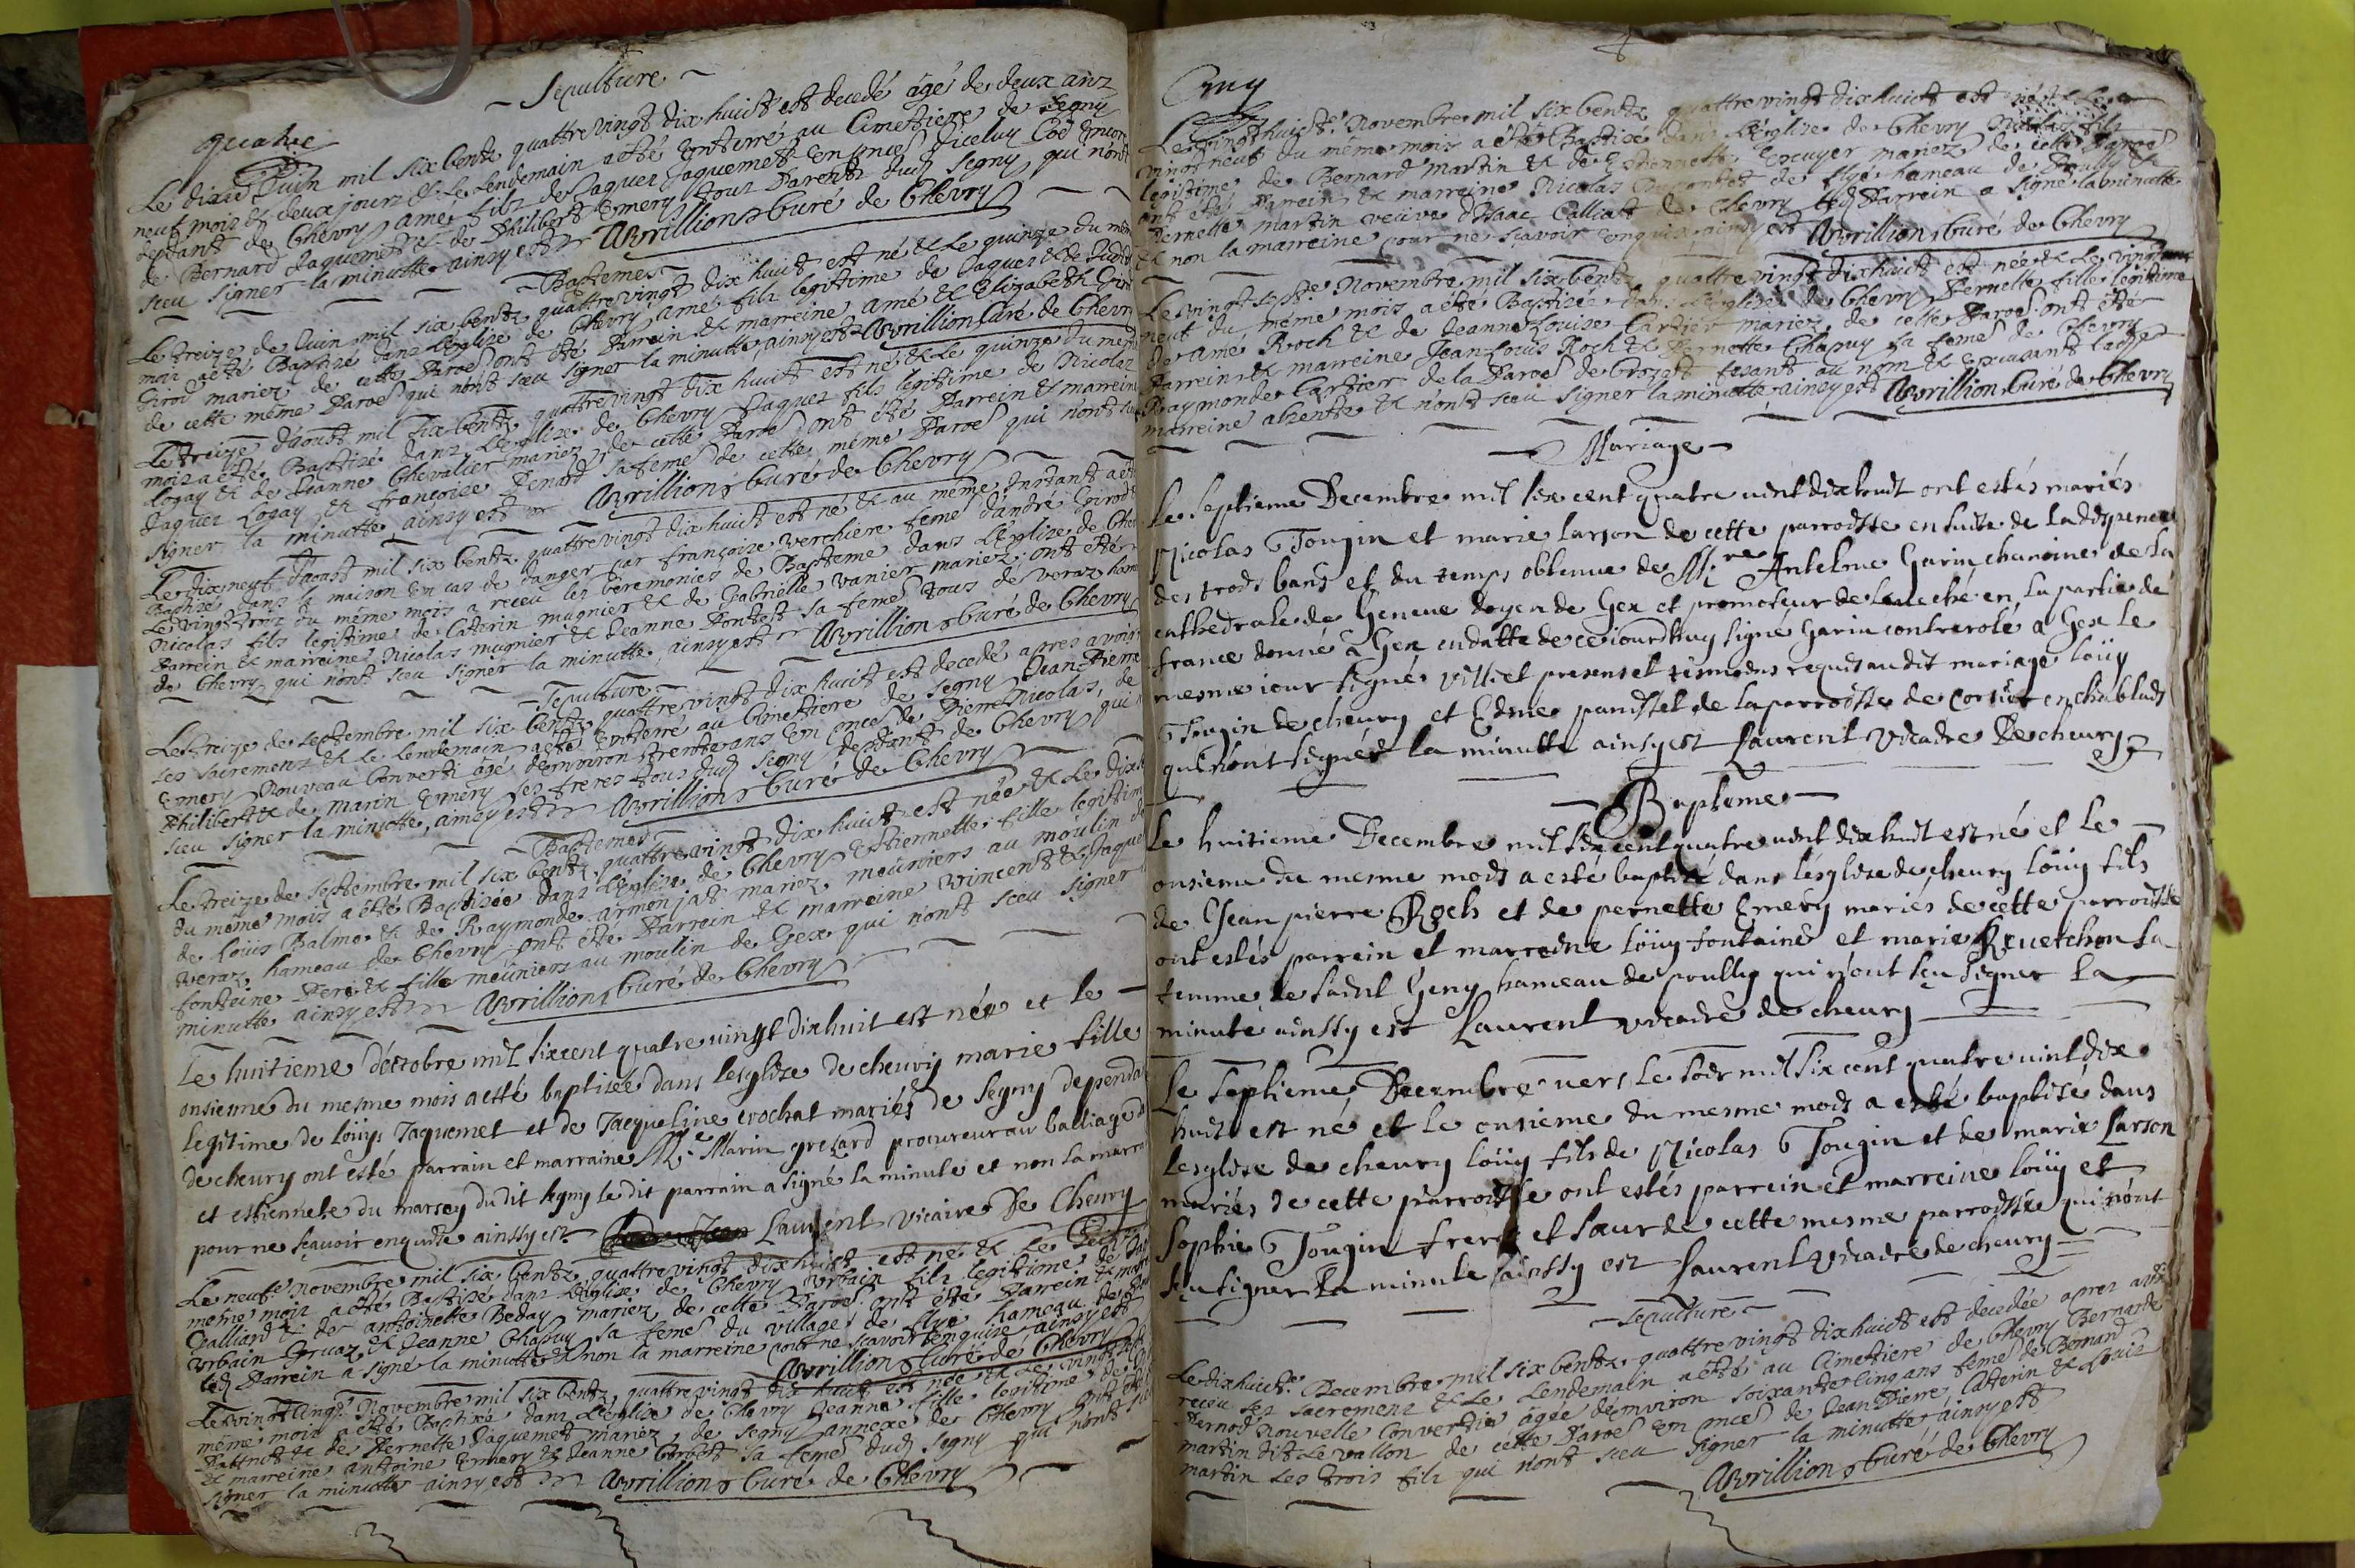 quatre
Sepulture
Le dixe Juin mil six centz quattre vingt dix huict est decedé âgé de deux anz
neuf mois & deux jours & le Lendemain a été Enterré au Cimettiere de Segny
dependant de Chevry Amé filz de Jaques Jaquemet En pnces d'iceluy Coe Encore
de Bernard Jaquemet & de Philibert Emery tous Parents dud. Segny qui n'ont
sceu signer la minutte, ainsy est Avrillion Curé de Chevry
Baptemes
Le treize de Juin mil six centz quattre vingt dix huict est né & Le quinze du même
mois a été Baptizé dans L'eglize de Chevry Amé filz legitime de Jaques & de
Girod mariez de cette Paroe ont été Parrein & marreine Amé & Elizabeth Girod
de cette même Paroe qui n'ont sceu signer la minutte, ainsy est Avrillion Curé de Chevry
Le treize d'aoust mil six centz quattre vingt dix huict est né & Le quinze du même
mois a été Baptizé dans L'eglize de Chevry Jaques fils legitime de Nicolas
Logay & de Jeanne Chevalier mariez de cette Paroe ont été Parrein & marreine
Jaques Logay & françoize Penard sa feme de cette même Paroe qui n'ont sceu
signer la minutte, ainsy est Avrillion Curé de Chevry
Le dix neuf d'aoust mil six centz quattre vingt dix huict est né & au même Instant a été
Baptizé dans la maison En cas de danger par françoize Verchiere feme d'andré Girod
Le vingt trois du même mois a receu les Ceremonies de Bapteme dans L'eglize de Chevry
Nicolas fils legitime de Caterin mugnier & de Gabrielle Vanier mariez; ont été
Parrein & marreine Nicolas mugnier & Jeanne Pontet sa feme tous de Veraz hameau
de Chevry qui n'ont sceu signer la minutte, ainsy est Avrillion Curé de Chevry
Sepulture
Le treize de septembre mil six centz quattre vingt dix huict est decedé apres avoir
ses sacrements & le lendemain a été Enterré au Cimettiere de segny Jean Pierre
Emery Nouveau Converti âgé d'environ trente ans En pnces de Pierre Nicolas, de
Philibert & de Marin Emery ses freres tous dud. segny dependant de Chevry qui
sceu signer la minutte, ainsy est Avrillion Curé de Chevry
Baptemes
Le treize de septembre mil six centz quattre vingt dix huict est née & Le dix
du même mois a été Baptizée dans L'eglize de Chevry Estiennette fille legitime
de Loüis Balme & de Raymonde armenjat mariez, meuniers au moulin de
Veraz hameau de Chevry ont été Parrein & marreine Vincent & Jaque
fonteine Pere & fille meuniers au moulin de Gex qui n'ont sceu signer
minutte ainsy est Avrillion Curé de Chevry
Le huitieme d'octobre mil sixcent quatre vingt dix huit est née et le
onsieme du mesme mois a esté baptisée dans l'esglise de cheury marie fille
legitime de loüys Jaquemet et de Jacqueline crochat mariés de Segny dependa
de cheury ont esté parrain et marraine Me. Marin grezard procureur au balliage
et estiennete du marcey dudit segny le dit parrain a signé la minute et non la marra
pour ne sçauoir enquise ainssy est Laurent vicaire De Cheury
Le neufe Novembre mil six centz quattre vingt dix huict est né & Le
même mois a été Baptizé dans L'eglize de Chevry Urbain filz legitime de
Galliard & de antoinette Beday mariez de cette Paroe ont été Parrein & marre
Urbain Gruaz & Jeanne Chapuy sa feme du village de flye hameau de
led Parrein a signé la minutte & non la marreine pour ne scavoir Enquise ainsy est
Avrillion Curé de Chevry
Le vingt Cinqe Novembre mil six centz quattre vingt dix huict est née & Le vingt
même mois a été Baptizée dans L'eglize de Chevry Jeanne fille legitime de
& de Pernette Jaquemet mariez, de Segny annexe de Chevry ont été
& marreine antoine Emery & Jeanne Corbet sa feme dud segny qui n'ont
signer la minutte ainsy est Avrillion Curé de Chevry
Cinq
Le vingt huicte Novembre mil six centz quattre vingt dix huict est né & Le
vingt neuf du même mois a été Baptizé dans L'eglize de Chevry Nicolas filz
legitime de Bernard Martin & de Estiennette Escuyer mariez de cette Paroe
ont été Parrein & marreine Nicolas de flye hameau de Poully &
Pernette Martin veüve d'Isaac Calliat de Chevry led Parrein a signé la minutte
& non la marreine pour ne scavoir enquize, ainsy est Avrillion Curé de Chevry
Le vingt septe Novembre mil six centz quattre vingt dix huict est née & Le vingt
neuf du même mois a été Baptizée dans L'eglize de Chevry Pernette fille legitime
de Amé Roch & de Jeanne Louise Cartier mariez de cette Paroe ont été
Parrein & marreine Jean Louis Roch & Pernette Chapuy sa feme de Chevry
Raymonde Cartier de la Paroe de Crozet fesant au nom & Excusant lad
marreine absente & n'ont sceu signer la minutte ainsy est Avrillion Curé de Chevry
Mariage
Le septieme Decembre mil six cent quatre vint dix huit ont estés mariés
Nicolas Tougin et marie larson de cette parroisse en suite de la dispence
des trois bans et du temps obtenue de Mre Antelme Garin chanoine de la
cathedrale de Geneue doyen de Gex et promoteur de leueché en la partie de
france donné a Gex en datte de ce iourdhuy signé Garin controrolé a Gex le
mesme iour signé Villiet presens et tesmoins requis au dit mariage loüy
Tougin de cheury et Edme panistel de la parroisse de corsier en chablais
qui n'ont signés la minutte ainsy est Laurent vicaire De cheury
Baptemes
Le huitieme Decembre mil six cent quatre vint dix huit est né et le
onsieme du mesme mois a esté baptisé dans l'esglise de cheury loüy fils
de Jean pierre Roch et de pernette Emery mariés de cette parroisse
ont estés parrein et marreine loüy fontaine et marie Reuerchon sa
femme de saint Geny hameau de poully qui n'ont sçu signer la
minute ainssy est Laurent vicaire de cheury
Le septieme Decembre vers le soir mil six cent quatre vint dix
huit est né et le onsieme du mesme mois a esté baptisé dans
l'esglise de cheury loüy fils de Nicolas Tougin et de marie Larson
mariés de cette parroisse ont estés parrein et marreine loüy et
Sophie Tougin frere et sœur de cette mesme parroisse qui n'ont
sçu signer la minute ainssy est Laurent vicaire de cheury
Sepulture
Le dix huicte Decembre mil six centz quattre vingt dix huict est decedée apres avoir
receu ses sacrements & Le Lendemain a été au Cimettiere de Chevry Bernarde
Pernod nouvelle Convertie âgée d'environ soixante cinq ans feme de Bernard
martin dit Le vallon de cette Paroe En pnces de Jean Pierre, Catterin & Louis
martin Les trois filz qui n'ont sceu signer la minutte, ainsy est
Avrillion Curé de Chevry